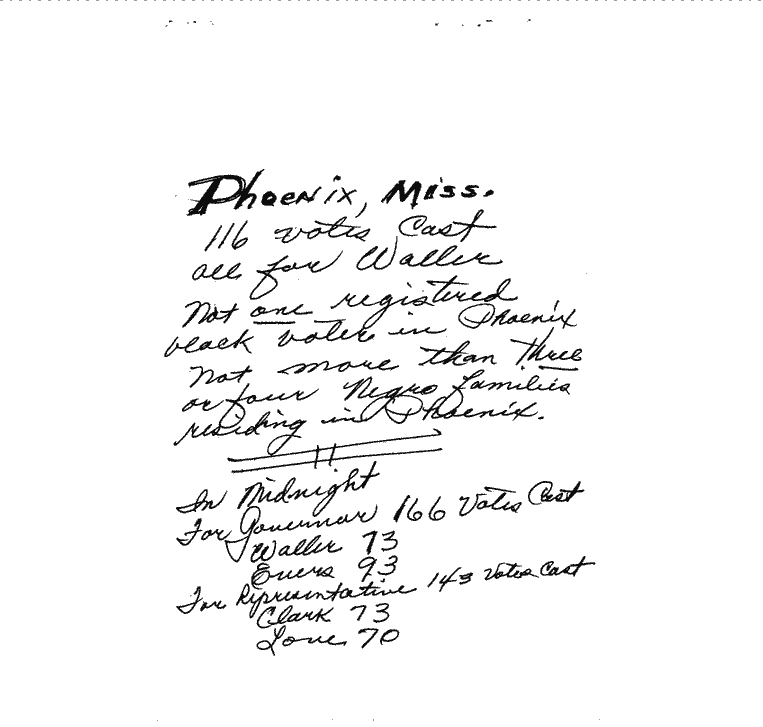 Phoenix, Miss.
116 votes Cast
all for Waller
Not one registered
black voter in Phoenix
Not more than three
or four Negro families
residing in Phoenix.
In Midnight
For Governor 166 Votes Cast
Waller 73
Evers 93
For Representative 143 Votes Cast
Clark 73
Love 70